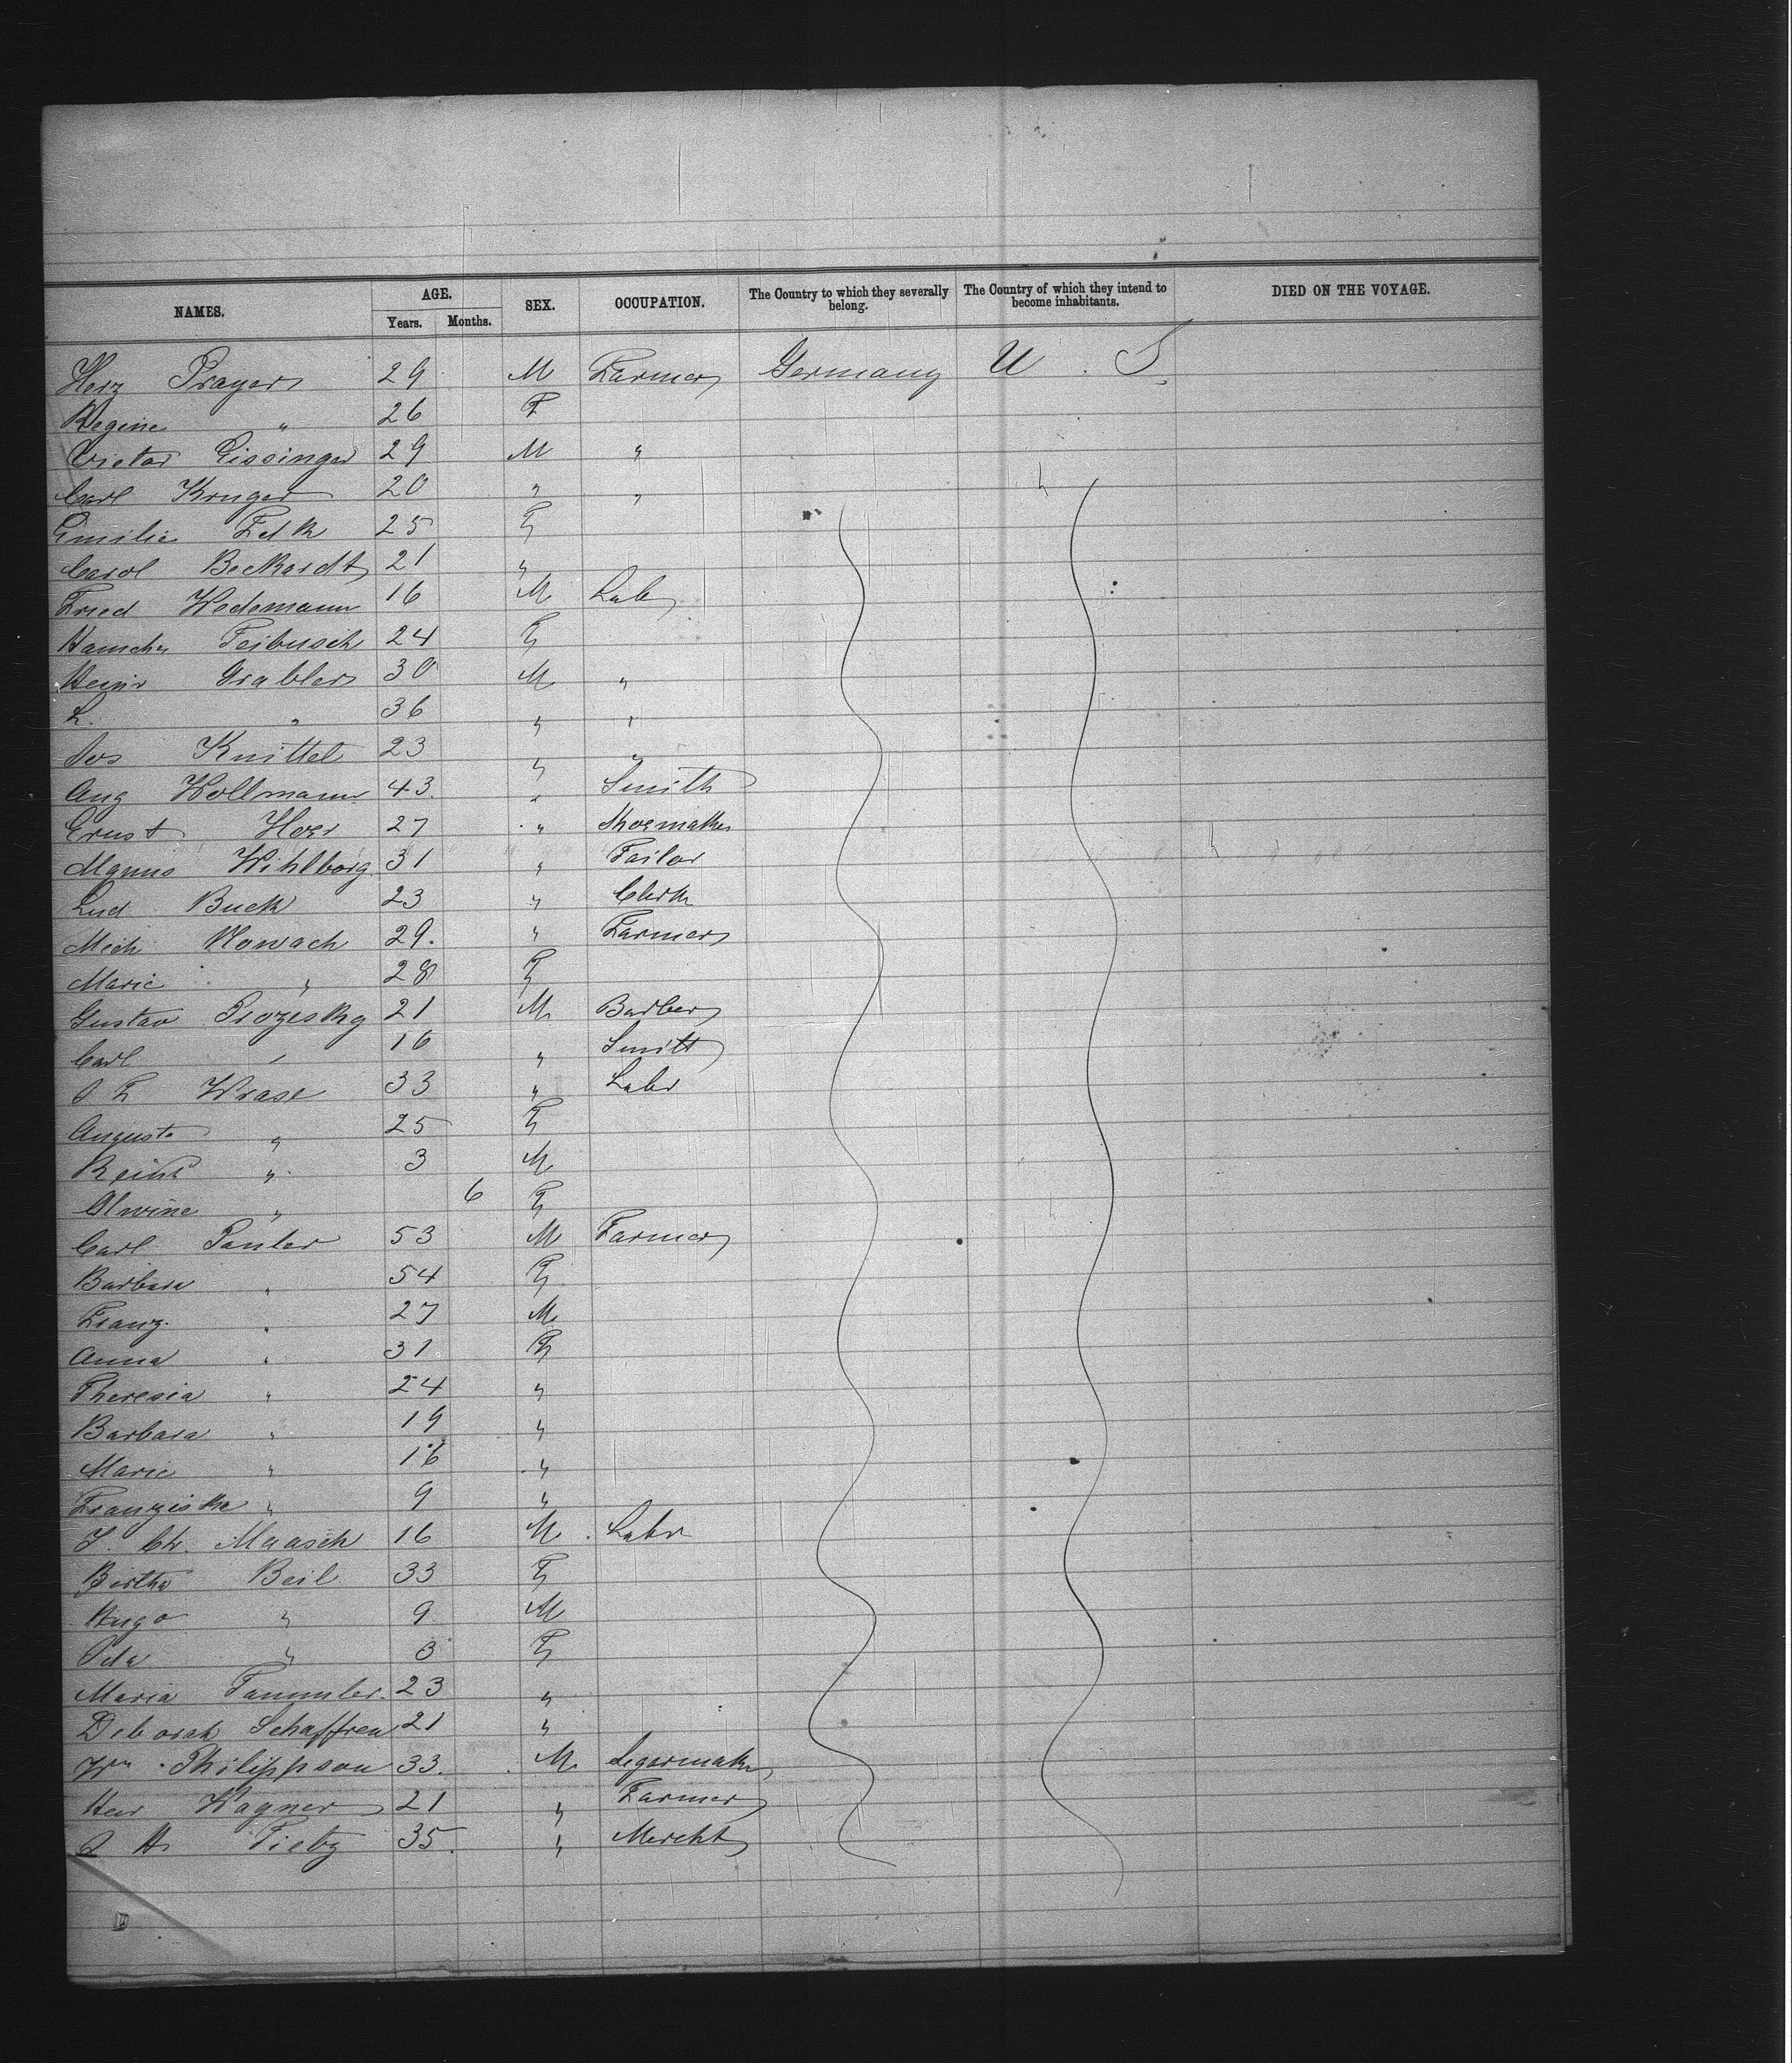 NAMES. AGE. Years. Months. SEX. OCCUPATION. The Country to which they severally belong. The Country of which they intend to become inhabitants. DIED ON THE VOYAGE.
Herz Prager 29 M Farmer Germany U. S.
Regine " 26 F
Victor Eissinger 29 M "
Carl Kruger 20 " "
Emilie 25 F
Carol Beckardt 21 "
Fried Wedemann 16 M Lab
Hannchn Feibusch 24 F
Heinr Grabler 30 M "
L. " 36 " "
Jos Knittel 23 " "
Aug Wollmann 43. " Smith
Ernst Hoer 27 " Shoemaker
Magnus Wihlborg 31 " Tailor
Lud Buck 23 " Clerk
Mich Nowach 29. " Farmer
Marie " 28 F
Gustav 21 M Barber
Carl " 16 " Smith
J F Wrase 33 " Labr
Auguste " 25 F
Reinh " 3 M
Alwine " 6 F
Carl Panler 53 M Farmer
Barbara " 54 F
Franz. " 27 M
Anna " 31 F
Theresia " 24 "
Barbara " 19 "
Marie " 16 "
Franziska " 9 "
J. Ch. Maasch 16 M Labr
Bertha Beil 33 F
Hugo " 9 M
Ida " 3 F
Maria Tammler. 23 "
Deborah Schaffren 21 "
Wm Philippson 33. M Segarmakr
Heir Wagner 21 " Farmer
J H 35. " Mercht